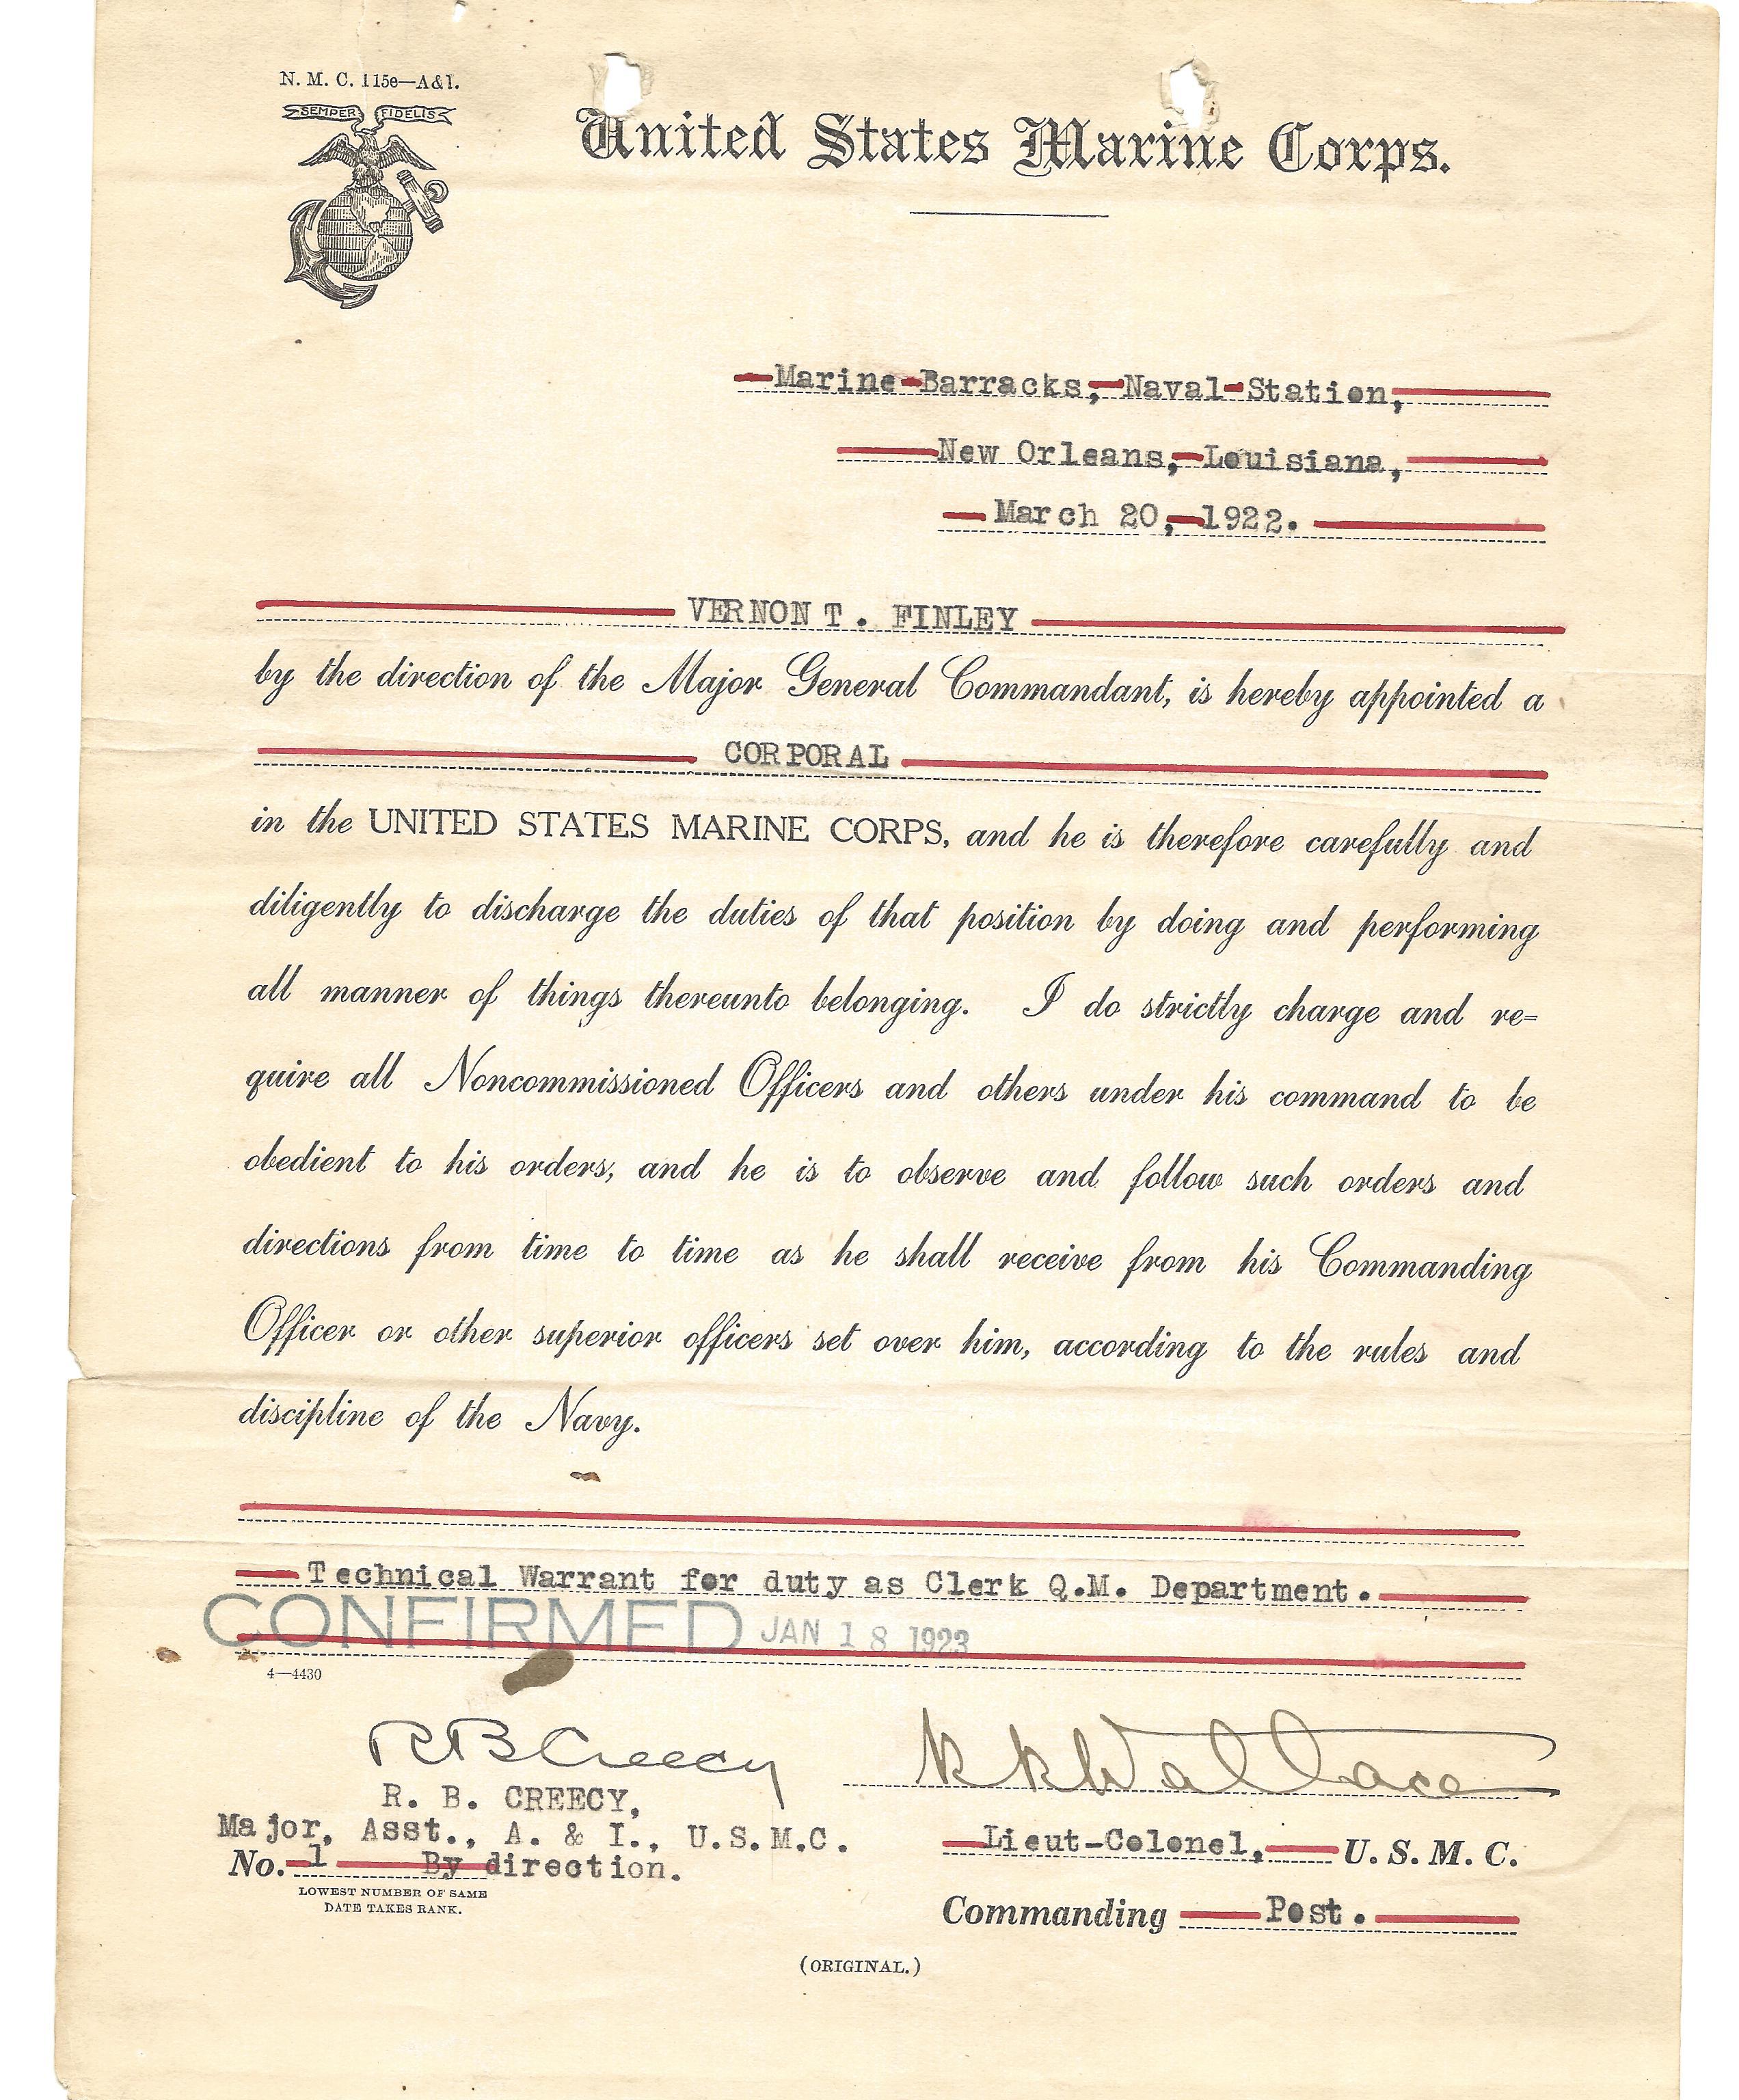 N. M. C. 115e—A&I.
SEMPER FIDELIS
United States Marine Corps.
Marine Barracks, Naval Station,
New Orleans, Louisiana,
March 20, 1922.
VERNON T. FINLEY
by the direction of the Major General Commandant, is hereby appointed a
CORPORAL
in the UNITED STATES MARINE CORPS, and he is therefore carefully and
diligently to discharge the duties of that position by doing and performing
all manner of things thereunto belonging. I do strictly charge and re=
quire all Noncommissioned Officers and others under his command to be
obedient to his orders, and he is to observe and follow such orders and
directions from time to time as he shall receive from his Commanding
Officer or other superior officers set over him, according to the rules and
discipline of the Navy.
Technical Warrant for duty as Clerk Q.M. Department.
CONFIRMED JAN 18 1923
4—4430
R B Creecy
K K Wallace
R. B. CREECY,
Major, Asst., A. & I., U.S.M.C.
Lieut-Colonel, U. S. M. C.
No. 1 By direction.
LOWEST NUMBER OF SAME
DATE TAKES RANK.
Commanding Post.
(ORIGINAL.)